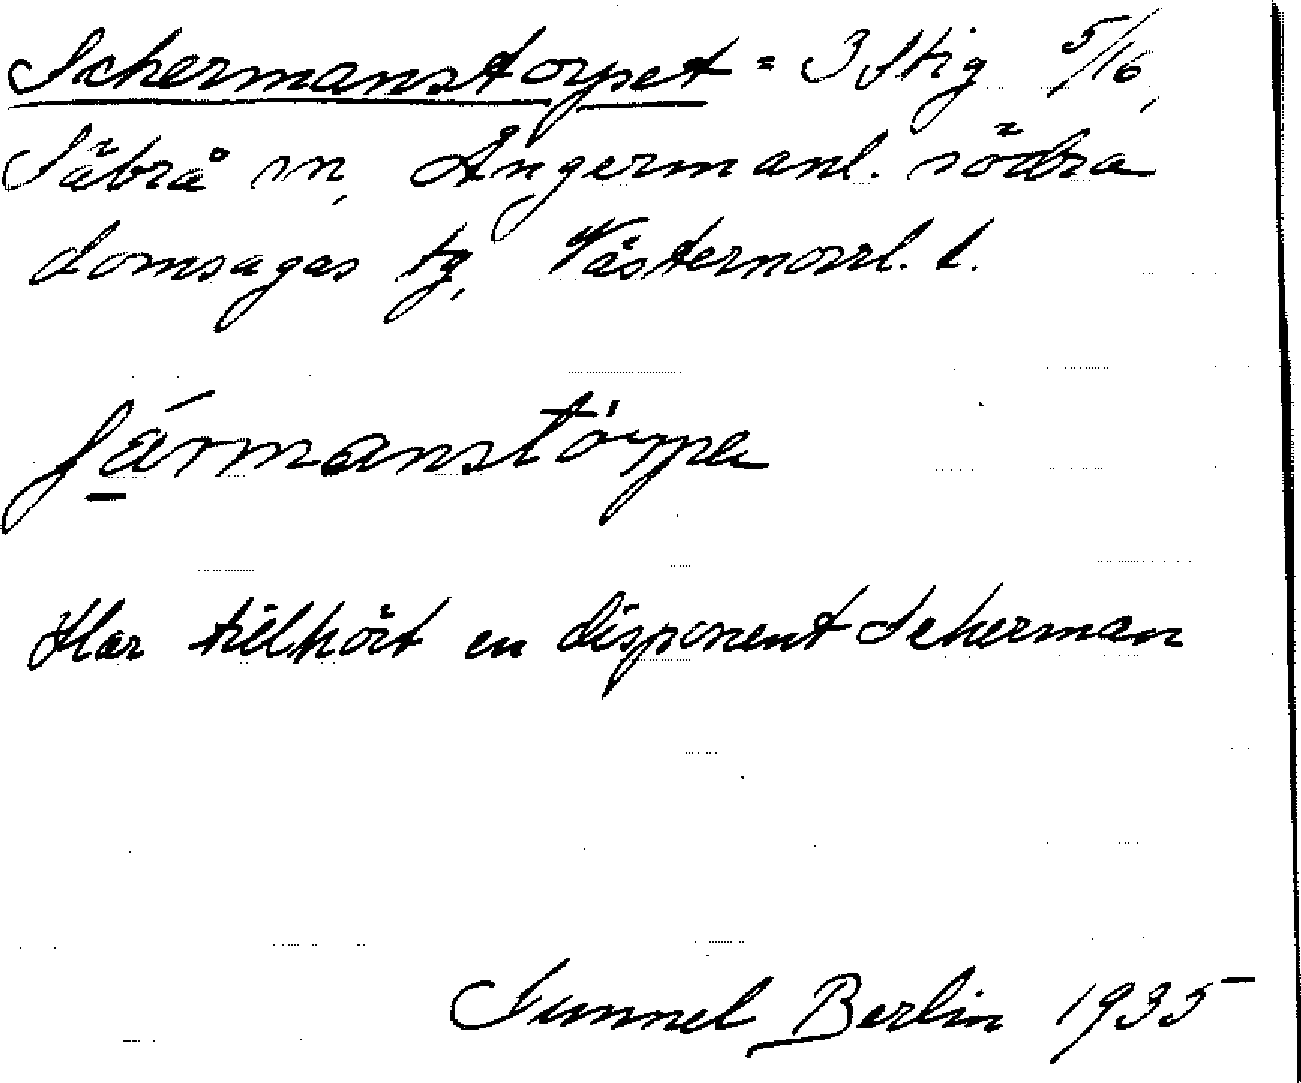 Schermanstorpet = 3 Stig 5/16,
Säbrå sn, Ångermanl. södra
domsagas tg, Västernorrl. l.
ʃármanstórpa
Har tillhört en disponent Scherman
Gunnel Berlin 1935